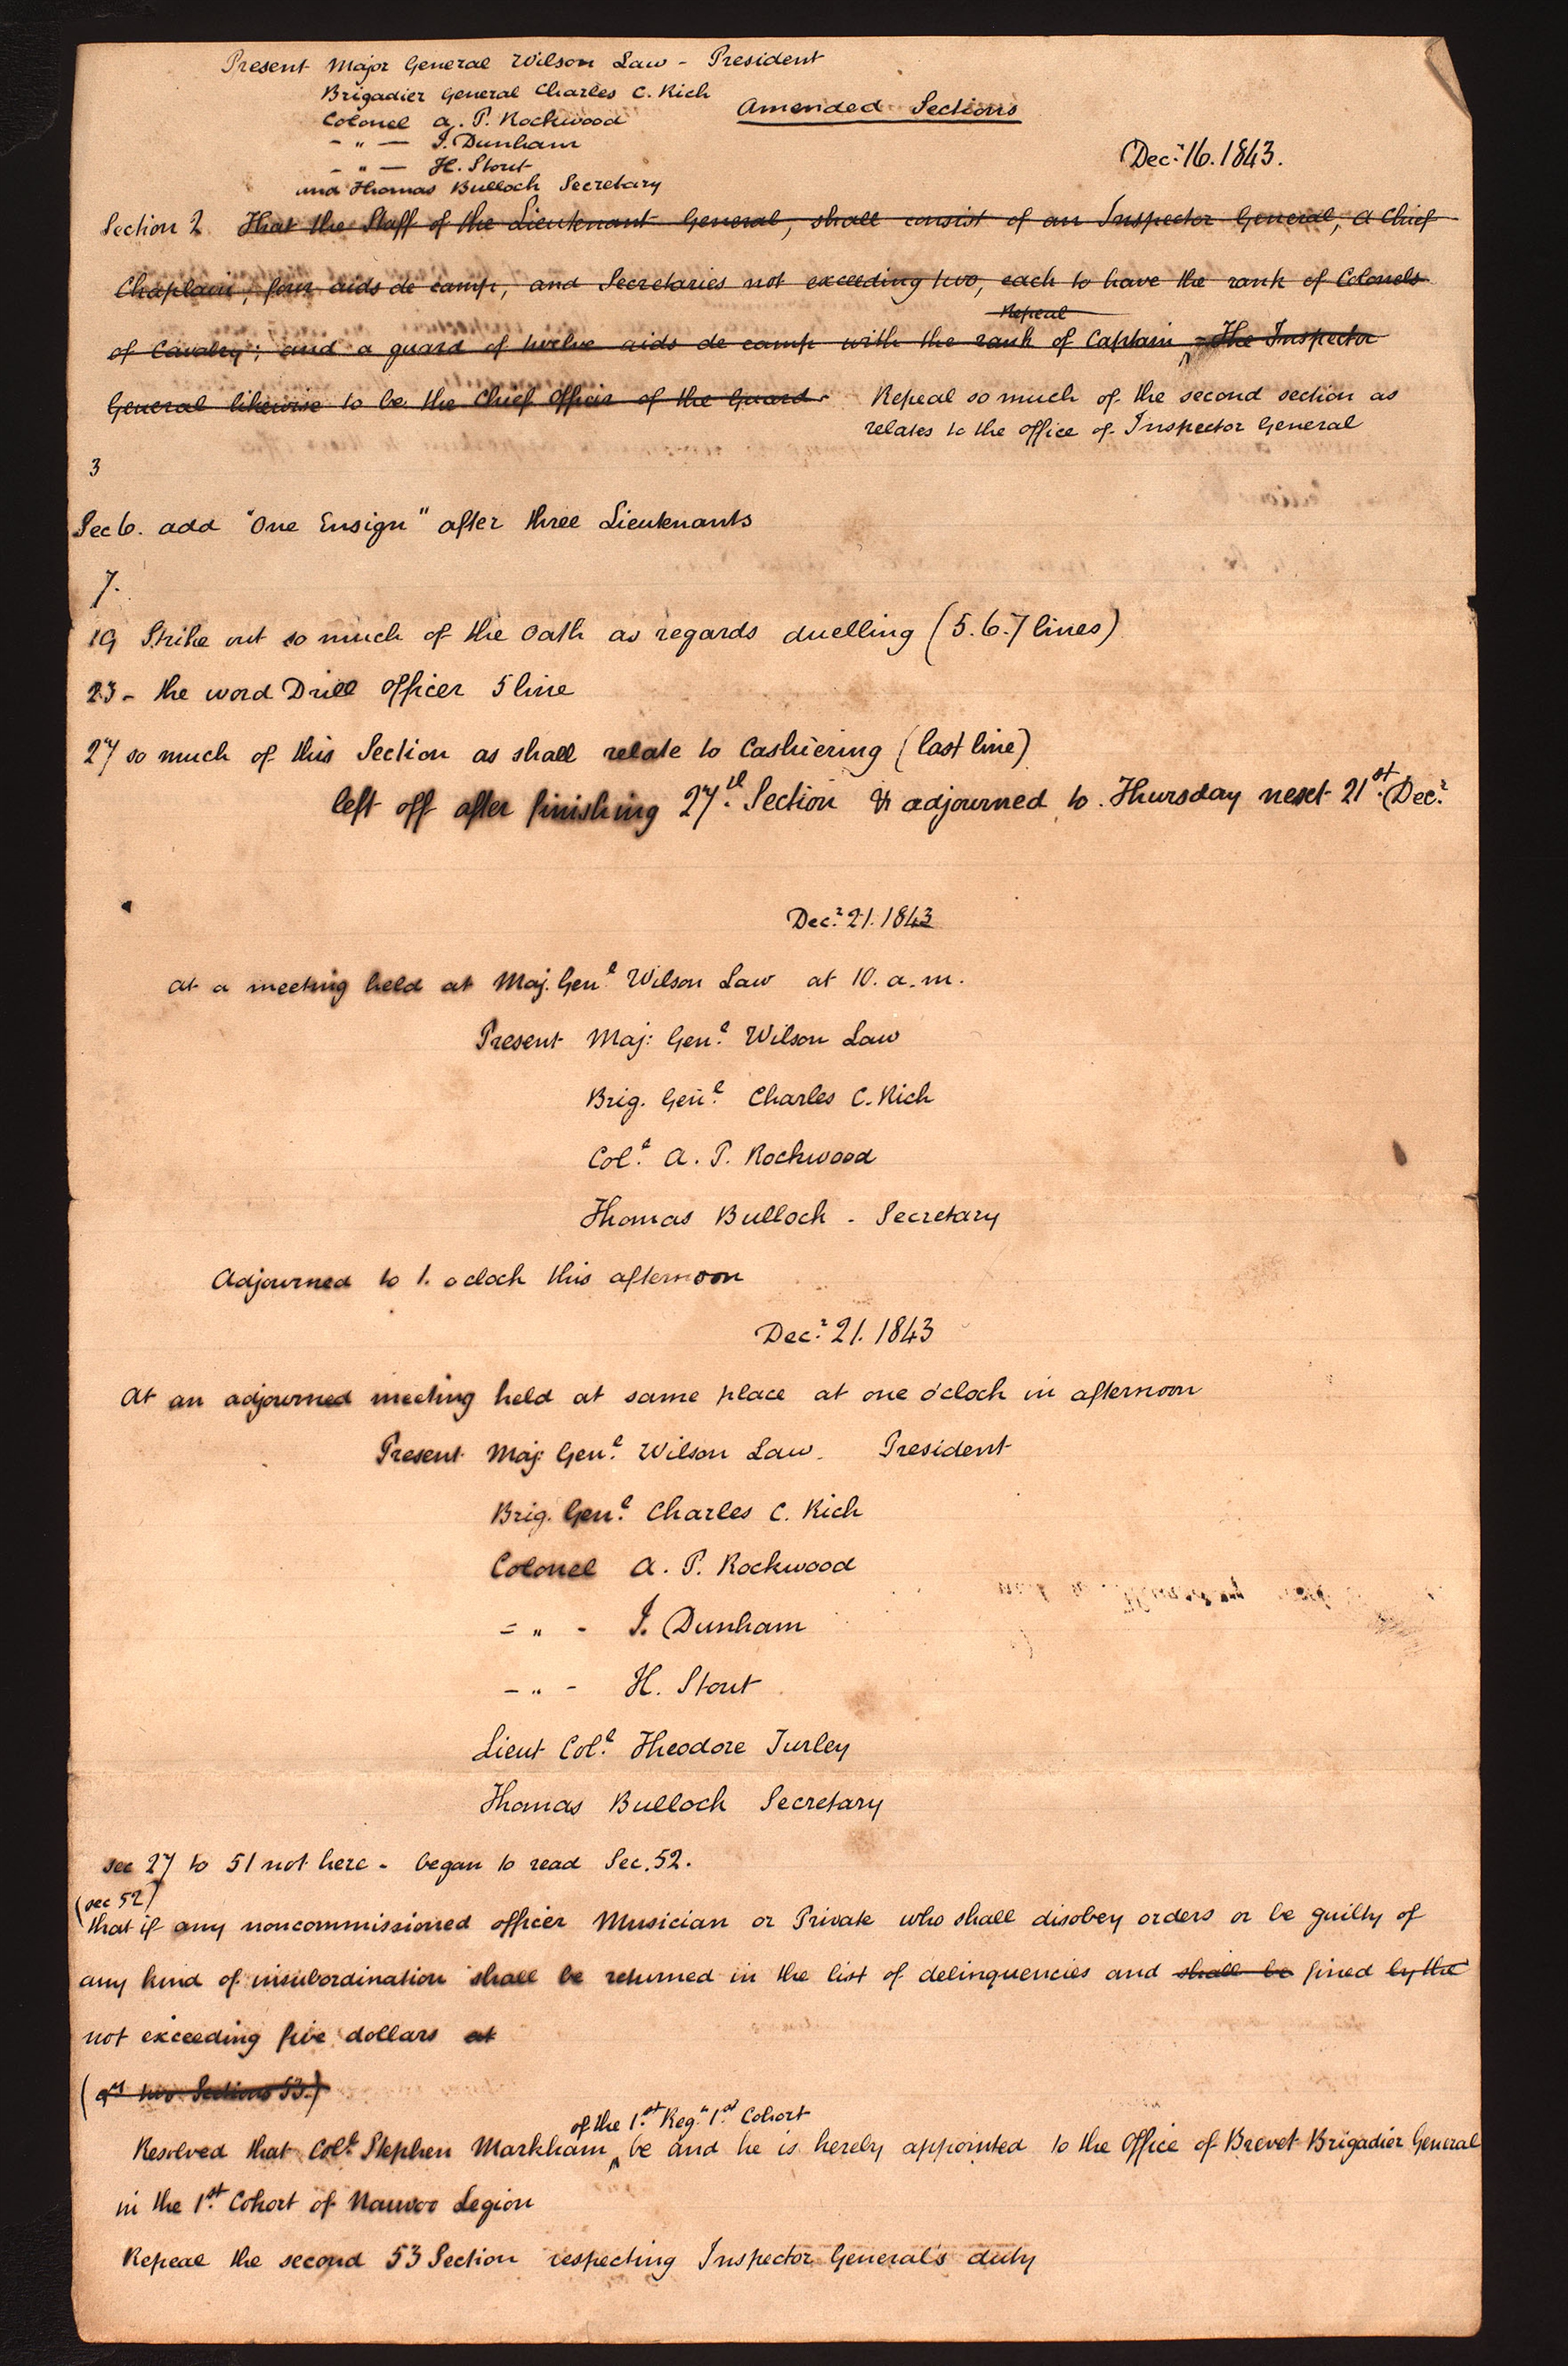 Present Major General Wilson Law - President
Brigadier General Charles C. Rich
Amended Sections
Colonel A. P. Rockwood
- " — J. Dunham
Decr. 16. 1843.
- " — H. Stout
and Thomas Bulloch Secretary
Section 2 That the Staff of the Lieutenant General, shall consist of an Inspector General, a Chief
Chaplain, four aids de camp, and Secretaries not exceeding two, each to have the rank of Colonels
Repeal
of Cavalry; and a guard of twelve aids de camp with the rank of Captain ^ - The Inspector
General likewise to be the Chief Officer of the Guard - Repeal so much of the second section as
relates to the office of Inspector General
3
Sec 6. add "One Ensign" after three Lieutenants
7.
19 Strike out so much of the Oath as regards duelling (5. 6. 7 lines)
23 - the word Drill officer 5 line
27 so much of this Section as shall relate to Cashiering (last line)
left off after finishing 27th. Section & adjourned to Thursday next 21st. Decr.
Decr. 21. 1843
at a meeting held at Maj. Genl. Wilson Law at 10. a.m.
Present Maj: Genl. Wilson Law
Brig. Genl. Charles C. Rich
Coll. A. P. Rockwood
Thomas Bulloch - Secretary
Adjourned to 1. oclock this afternoon
Decr. 21. 1843
At an adjourned meeting held at same place at one o'clock in afternoon
Present Maj: Genl. Wilson Law. President
Brig. Genl. Charles C. Rich
Colonel A. P. Rockwood
= " - J. Dunham
- " - H. Stout
Lieut Coll. Theodore Turley
Thomas Bulloch Secretary
sec 27 to 51 not here - began to read Sec. 52.
(sec 52)
that if any noncommissioned officer Musician or Private who shall disobey orders or be guilty of
any kind of insubordination shall be returned in the list of delinquencies and shall be fined by the
not exceeding five dollars at
( two Sections 53.)
of the 1st. Regt. 1st. Cohort
Resolved that Coll. Stephen Markham ^ be and he is hereby appointed to the Office of Brevet Brigadier General
in the 1st. Cohort of Nauvoo Legion
Repeal the second 53 Section respecting Inspector General's duty